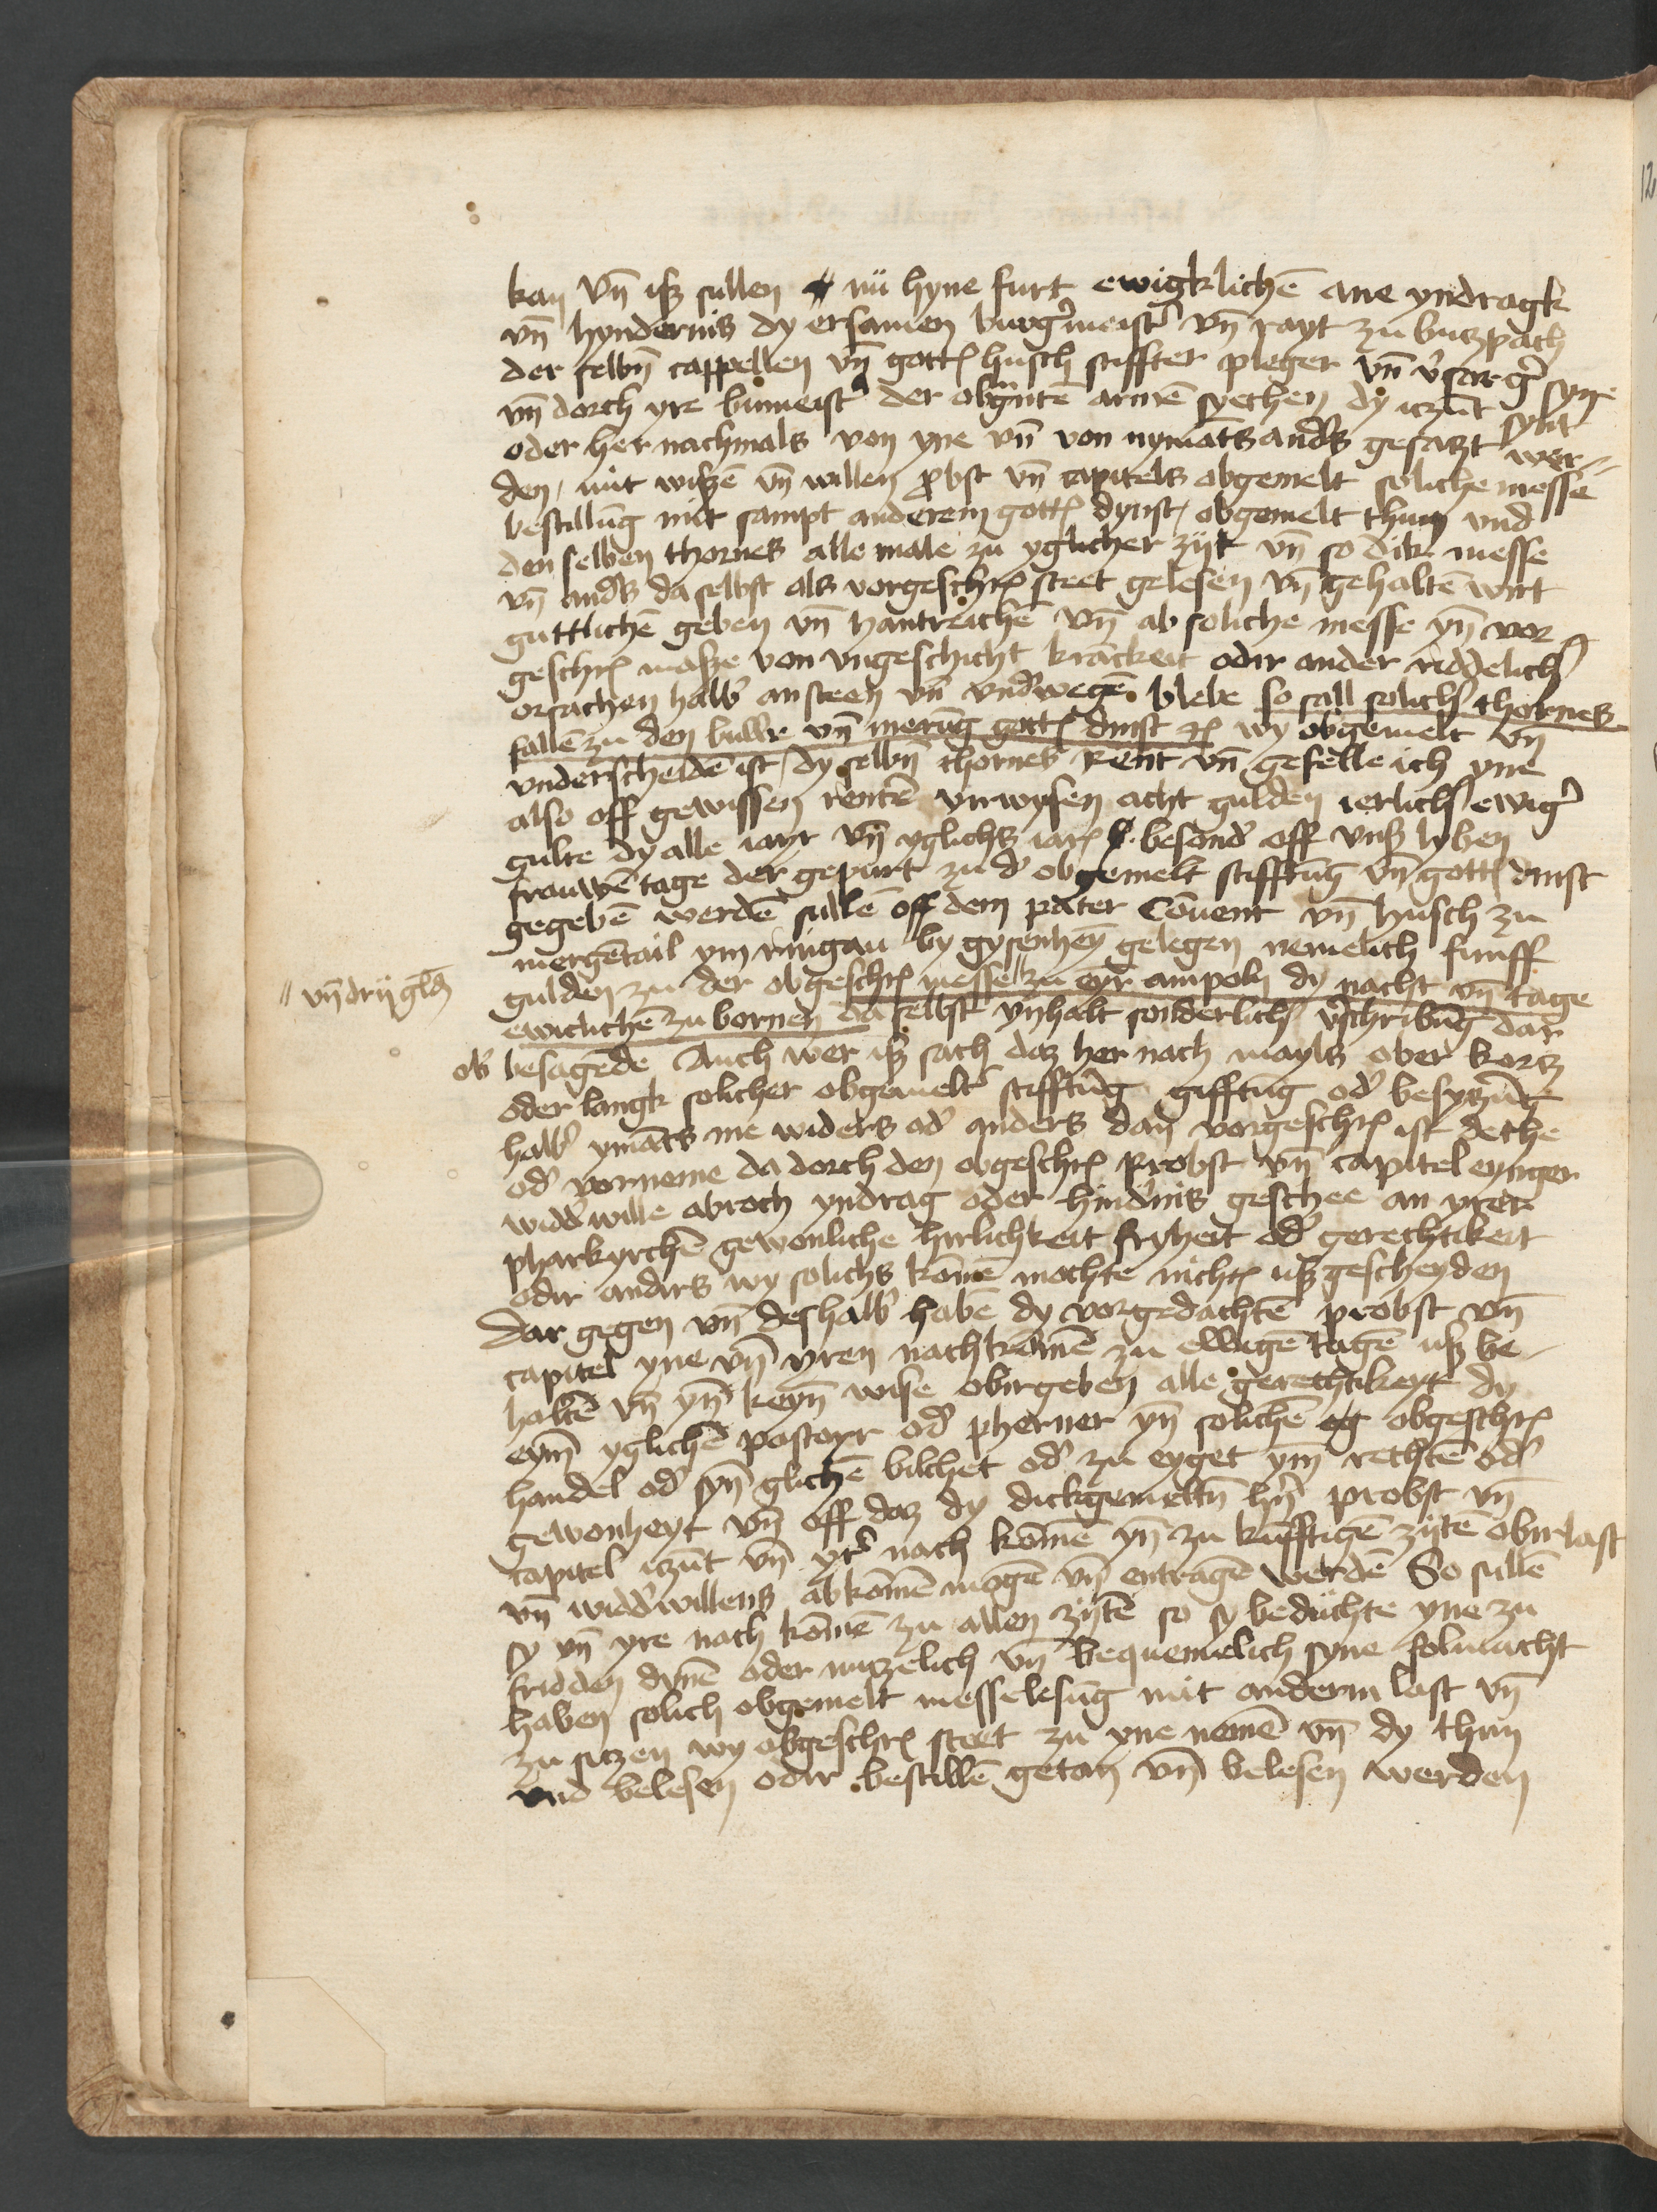 kan vn̄ isz sullen nü hyne furt ewigklichē ane yndragk
vn̄ hyndernis dy ersamen burg'meist' vn̄ rayt zu butzpach
der selbn̄ cappellen vn̄ gotts husch stiffter pleger vn̄ v'sorg' syne
vn̄ dorch yre bumeist' der obgn̄ntē armē syechen dy itzūt synt
oder her nachmals von yne vn̄ von nymāts and's gesatzt wer-
den, mit wiszē vn̄ willen probst vn̄ capitels obgemelt soliche messe
bestillūg mit sampt anderem gotts dynst, obgemelt thun vnd
den selben thornes alle male zu yglicher zijt vn̄ so dik messe
vn̄ and's da selbst als vorgeschrs steet gelesen vn̄ gehaltē wirt
guttlichē geben vn̄ hantreichē vn̄ ab soliche messe yn̄ vor
geschrs masze von vngeschicht krāckeit odir ander riddelich'
orsachen halb' ansteen vn̄ vnd'wegē blebe so sall solich' thornes
fallē zu den buwe vn̄ merūg gotts dinst rc wy obgemelt vn̄
vnderscheidē ist, dy selbn̄ thornes Rent vn̄ gefelle ich yne
also off gewissen rentē virwysen acht gulden ierlich' ewig'
gulte dy alle iayr vn̄ yglichs iars besond' off vnsz lyben
frauwē tage der gepurt zu d' obgemelt stifftūg vn̄ gotts dinst
gegebē werdē sullē off dem pater Cōuent vn̄ husch zu
mergētail ym ringau by gysenheȳ gelegen nemelich funff
gulden zu der obgeschrs messe // zu eyr ampoln dy nacht vn̄ tage
// vn̄ drij gldn̄
ewiclichē zu bornen da selbst ynhalt sonderlich' v'schribūg dar
ob' besagēde Auch wer isz sach daz her nach mayls ober kortz
oder langk solicher obgemelt' stifftūg gifftūg od' besytzūg
halb' ymāts me widers od' anders dan vorgeschrs ist dethe
od' vorneme da dorch den obgeschrs Probst vn̄ capitel eynger
widd'wille abroch yndrag oder hind'nis geschee an yrer
pharkyrchē gewonliche hirlichkeit fryheit od' gerechtikeit
odir anders wy solichs kōmē mochte nichts uszgescheyden
Dar gegen vn̄ deshalb' habē dy vorgedachtē probst vn̄
capitel yne vn̄ yren nachkōmē zu ewigē tagē usz be-
haltē vn̄ yn̄ keyn̄ wise obirgeben alle gerechtikeyt dy
eym̄ yglichē pastoyr od' pherner yn̄ solichē obgeschrs
handel od' syn̄ glichē bilchet od' zu eyget ym̄ rechtē od'
gewonheyt vn̄ off daz dy dickgemeltn̄ hn̄ probst vn̄
capitel itzūt vn̄ yr' nach kōmē yn̄ zu kūfftigē zijtē obirlast
vn̄ widd'willens abkōmē mogē vn̄ entragē werdē So sullē
sy vn̄ yre nach kōmē zu allen zijtē so sy beduchte yne zu
fridden dynē oder nutzelich vn̄ bequemelich syne folmacht
haben solich obgemelt messelesūg mit anderm last vn̄
zu sitzen wy obgeschrs steet zu yne nemē vn̄ dy thun
vnd belesen odir bestillē getan vn̄ belesen werden